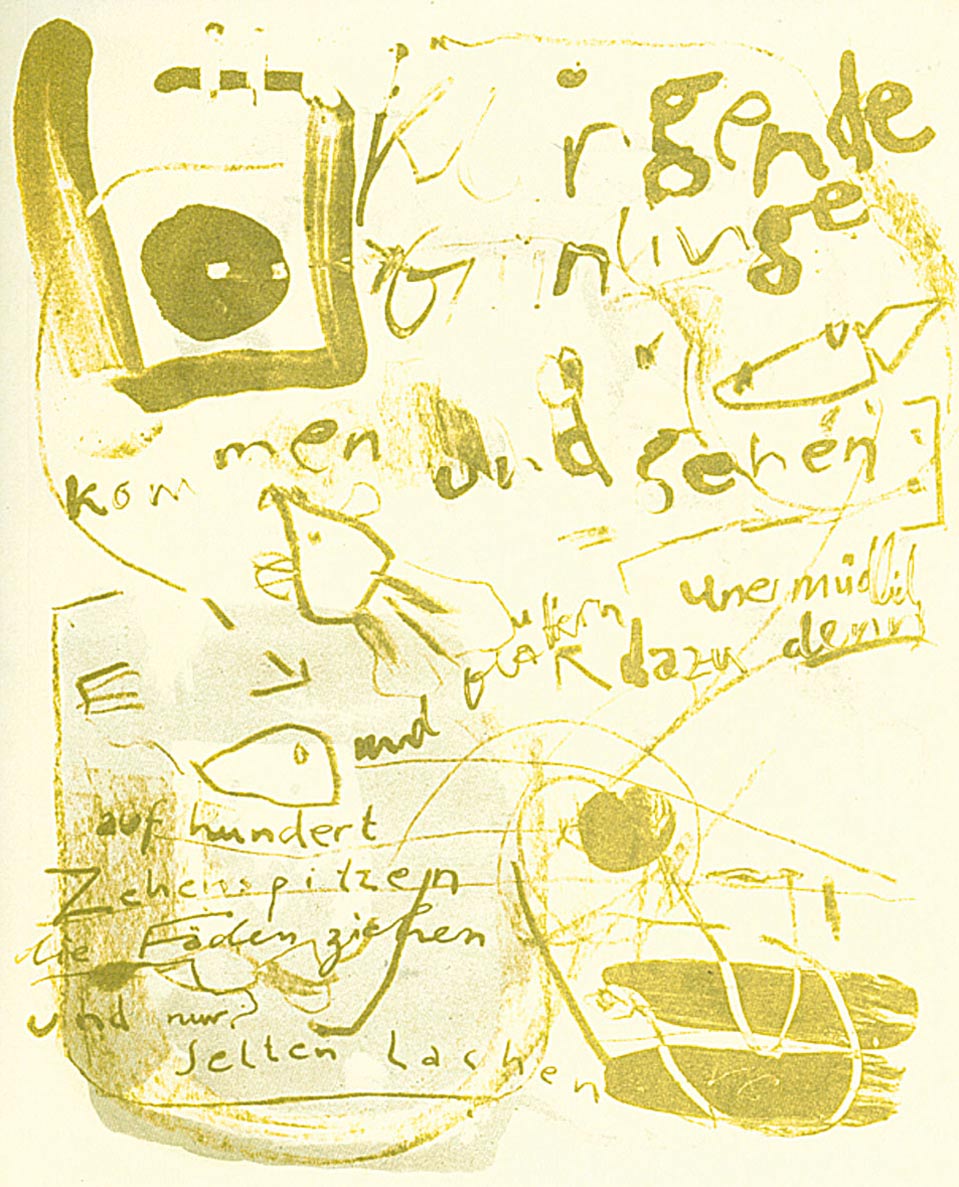 gende
kommen und gehen
unermüdlich
dazu denn
und
auf hundert
Zehenspitzen
die Fäden ziehen
und nur
selten lachen